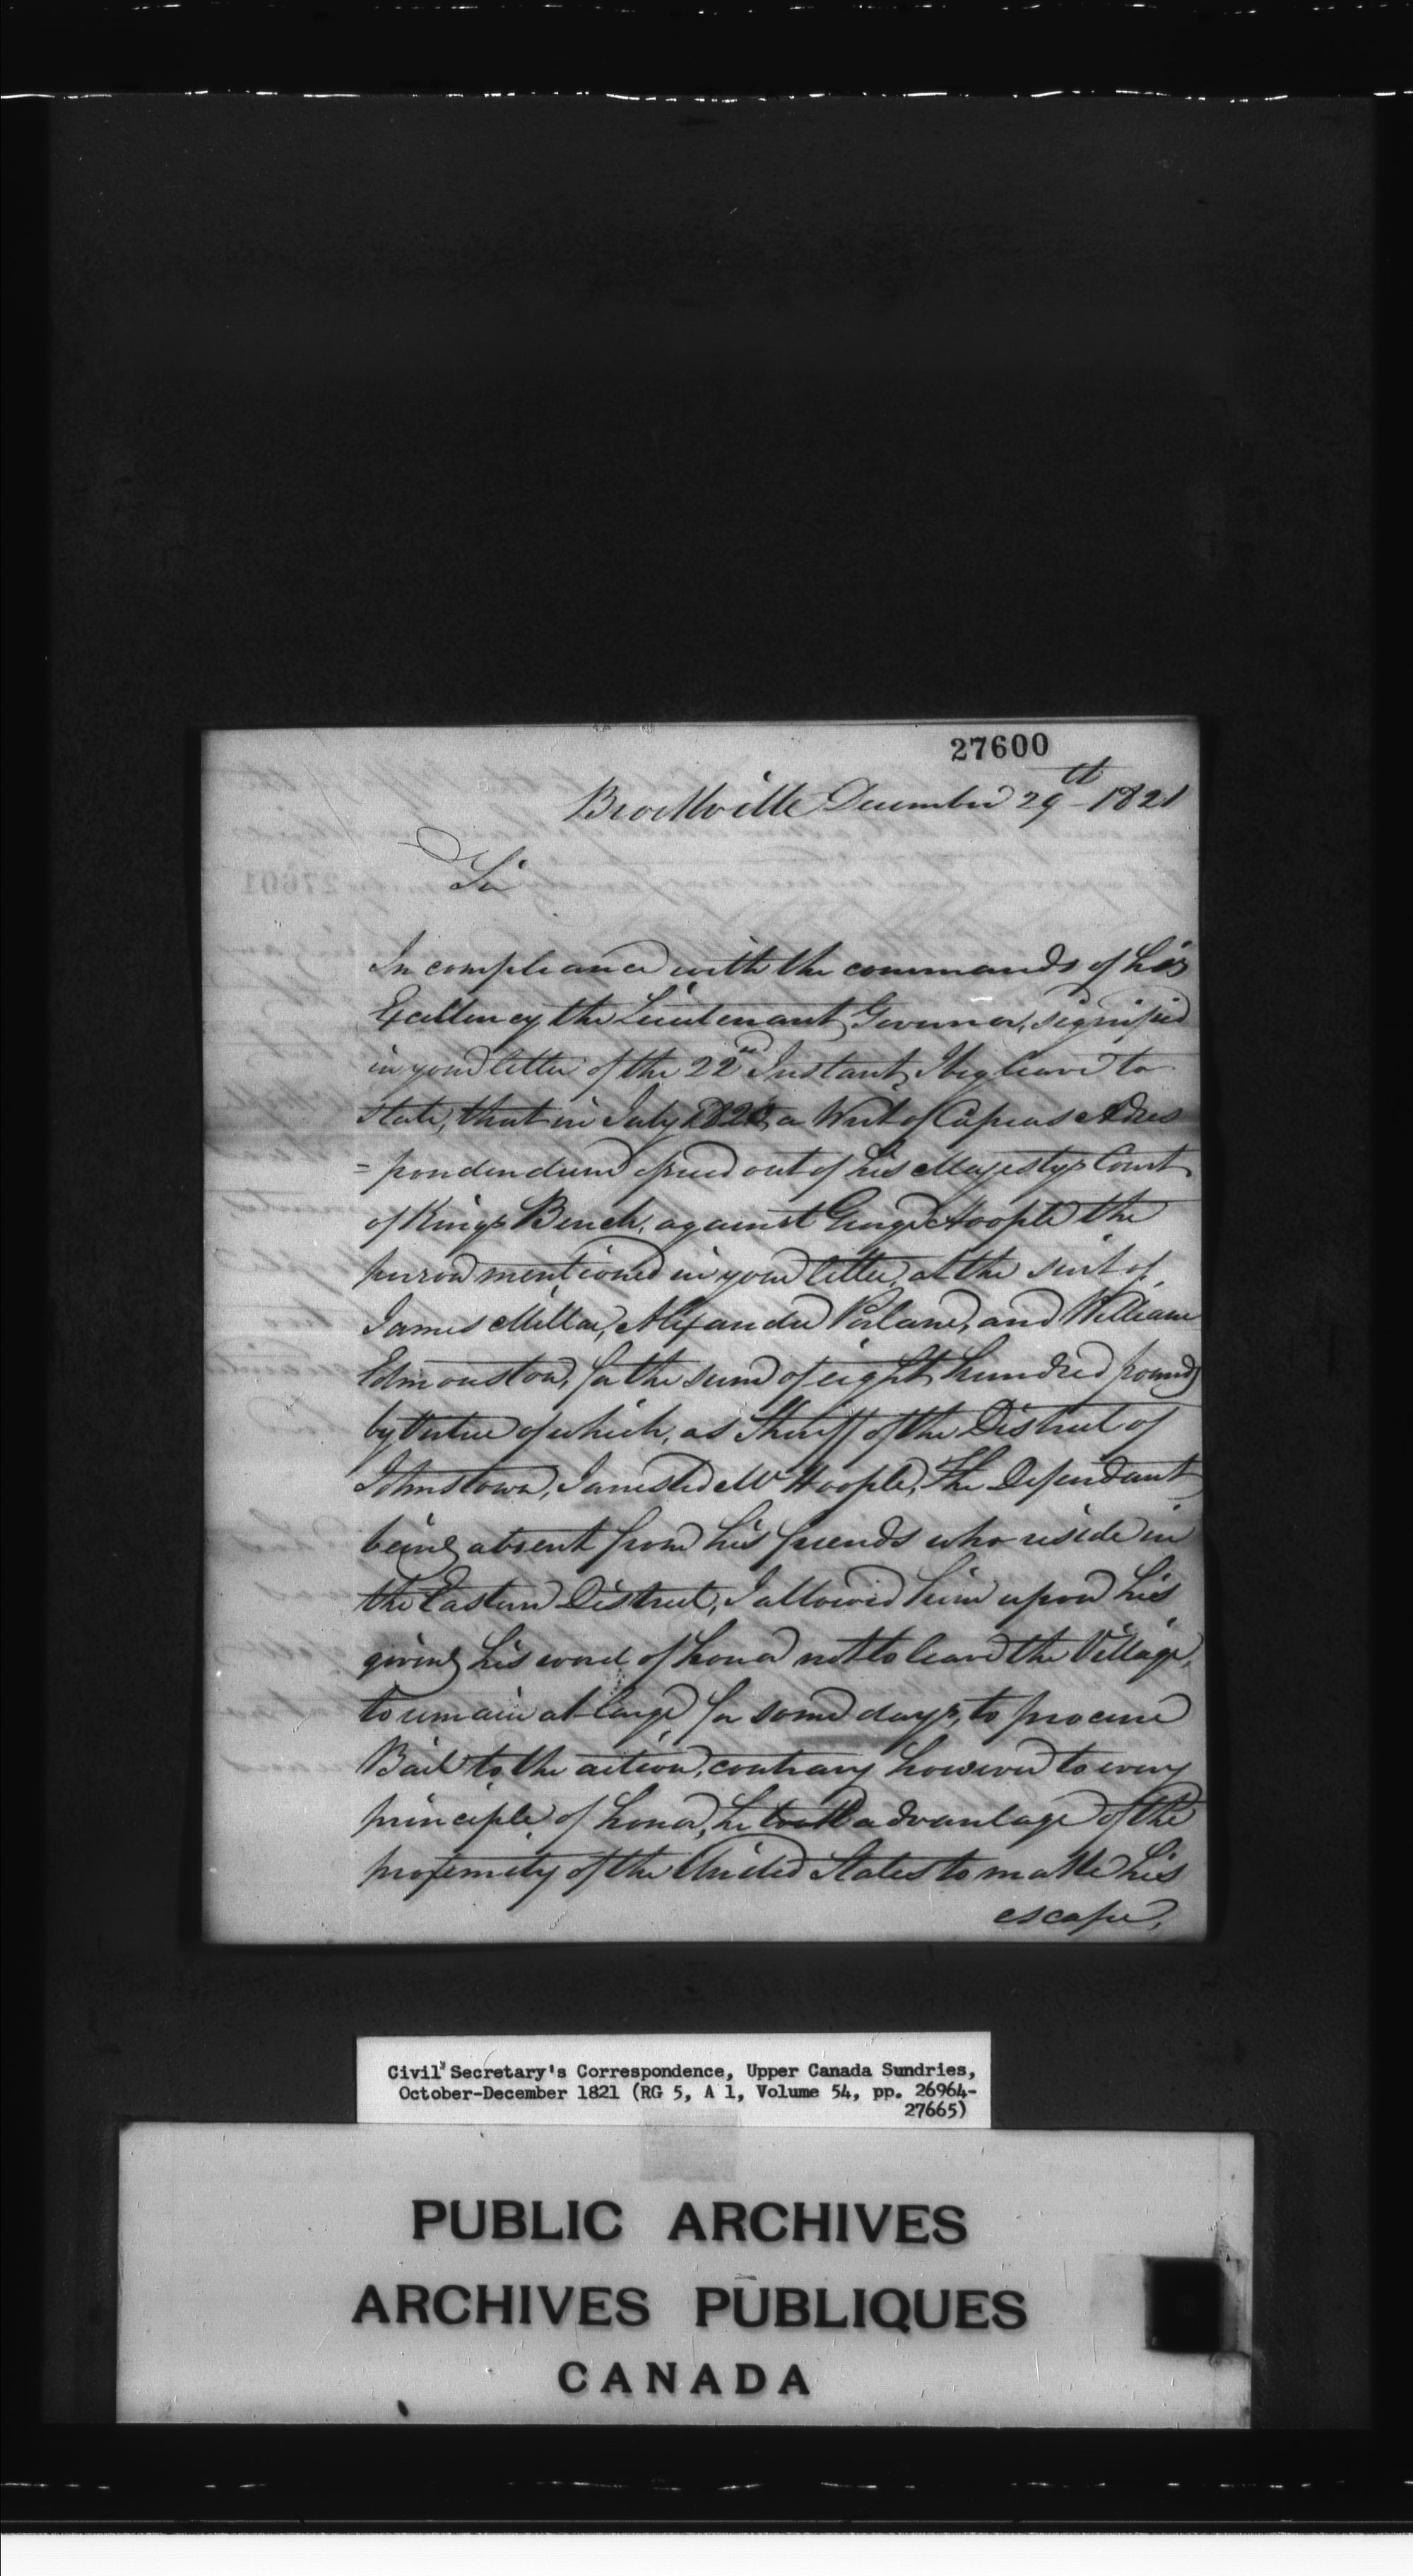 27600
Brockville December 29th 1821
Sir
In compliance with the commands of his
Excellency the Lieutenant Governor, signified
in your letter of the 22nd Instant, I beg leave to
state, that in July 1820, a Writ of Capias Adres
= pondendum issued out of his Majestys Court
of Kings Bench, against George Hoople the
person mentioned in your letter, at the suit of
James Millar, Alexander Parlane, and William
Edmonston, for the sum of eight hundred pounds
by Virtue of which, as Sheriff of the District of
Johnstown, I arrested Mr Hoople, The Defendant
being absent from his friends who reside in
the Eastern District, I allowed him upon his
giving his word of honor not to leave the Village,
to remain at large for some days, to procure
Bail to the action, contrary however to every
principle of honor, he took advantage of the
proximity of the United States to make his
escape,
27601
Civil Secretary's Correspondence, Upper Canada Sundries,
October-December 1821 (RG 5, A 1, Volume 54, pp. 26964-
27665)
PUBLIC ARCHIVES
ARCHIVES PUBLIQUES
CANADA